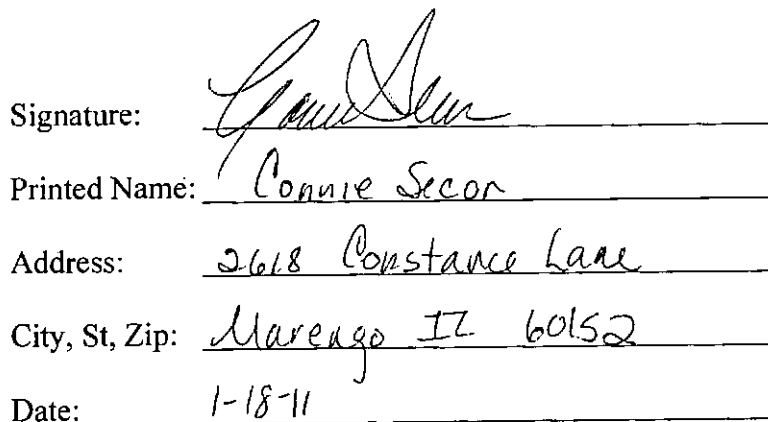 Signature:
Printed Name: Connie Secor
Address: 2618 Constance Lane
City, St, Zip: Marengo IL 60152
Date: 1-18-11